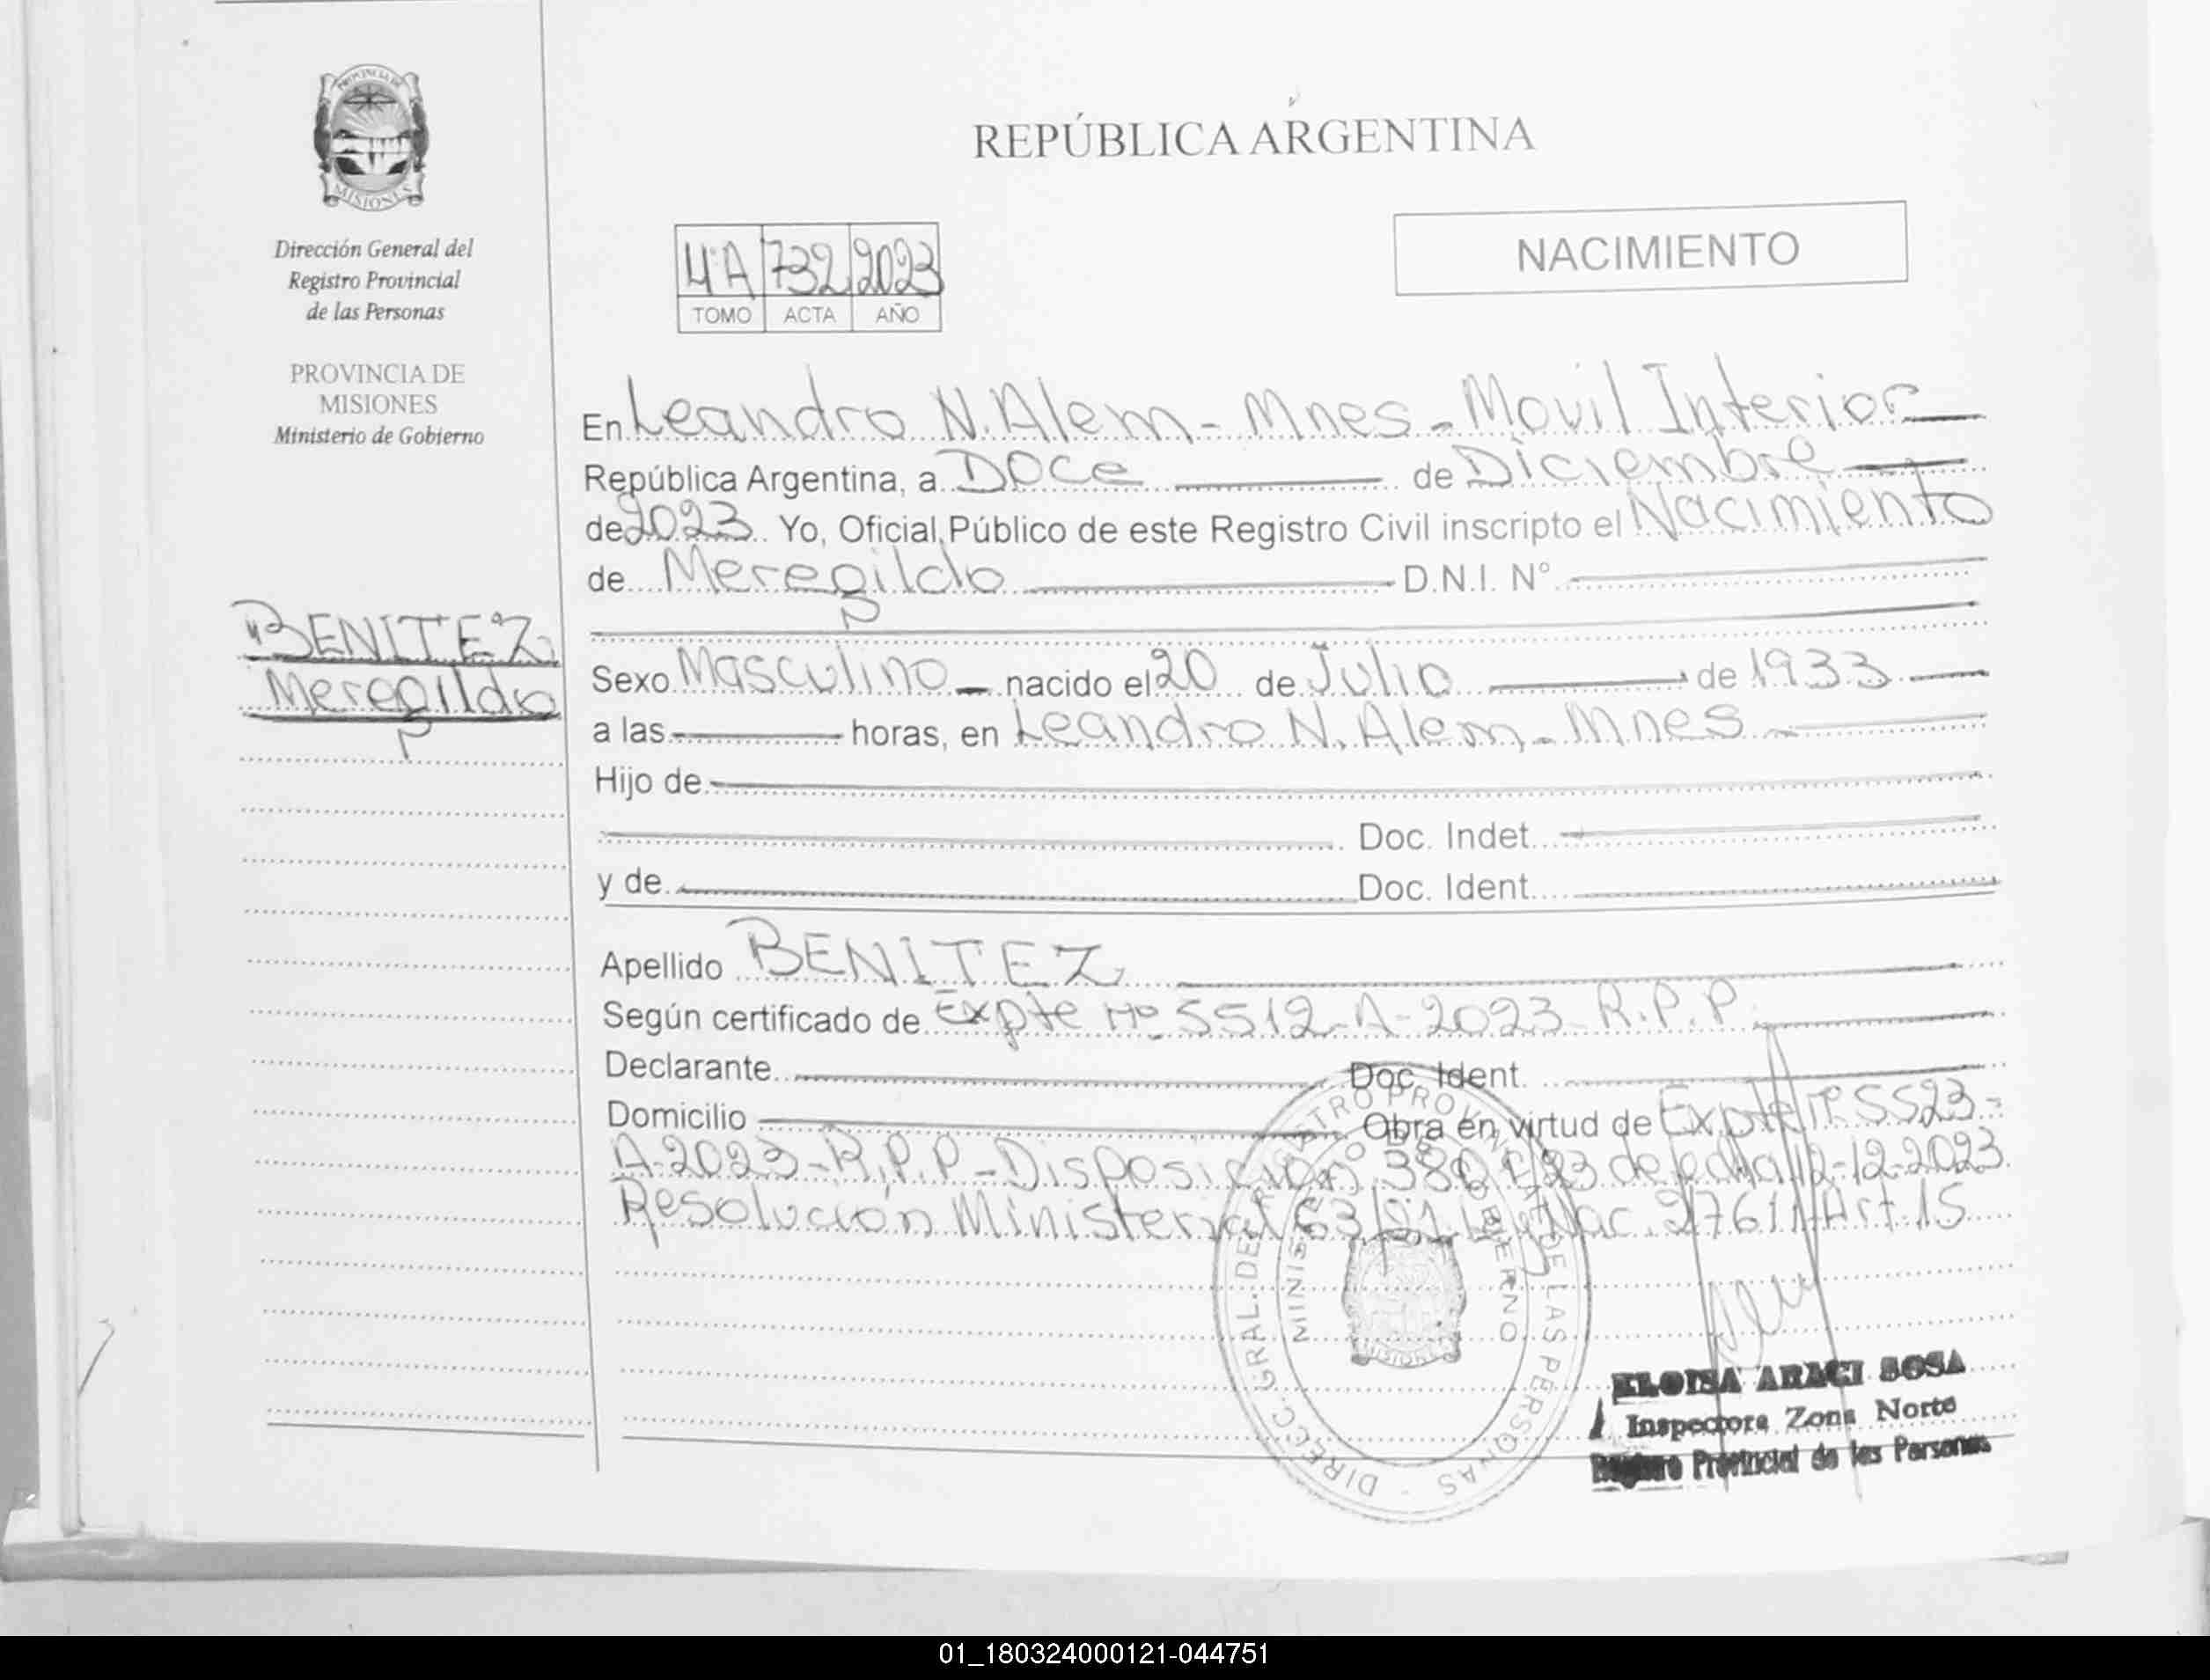 PROVINCIA DE
MISIONES
Dirección General del
Registro Provincial
de las Personas
PROVINCIA DE
MISIONES
Ministerio de Gobierno
BENITEZ
Meregildo
REPÚBLICA ARGENTINA
NACIMIENTO
4°A 732 2023
TOMO ACTA AÑO
En Leandro N. Alem - Mnes - Movil Interior
República Argentina, a Doce de Diciembre
de 2023. Yo, Oficial Público de este Registro Civil inscripto el Nacimiento
de Meregildo D.N.I. N°
Sexo Masculino nacido el 20 de Julio de 1933
a las horas, en Leandro N. Alem - Mnes
Hijo de
Doc. Indet.
y de Doc. Ident.
Apellido BENITEZ
Según certificado de Expte N° 5512-A-2023-R.P.P.
Declarante Doc. Ident.
Domicilio Obra en virtud de Expte N° 5523-
A-2023-R.P.P-Disposición de 12-12-2023.
Resolución Ministerial Art. 15
DIRECC. GRAL. DEL REGISTRO PROVINCIAL DE LAS PERSONAS
MINISTERIO DE GOBIERNO
MISIONES
ELOISA ARACI SOSA
Inspectora Zona Norte
Registro Provincial de las Personas
01_180324000121-044751